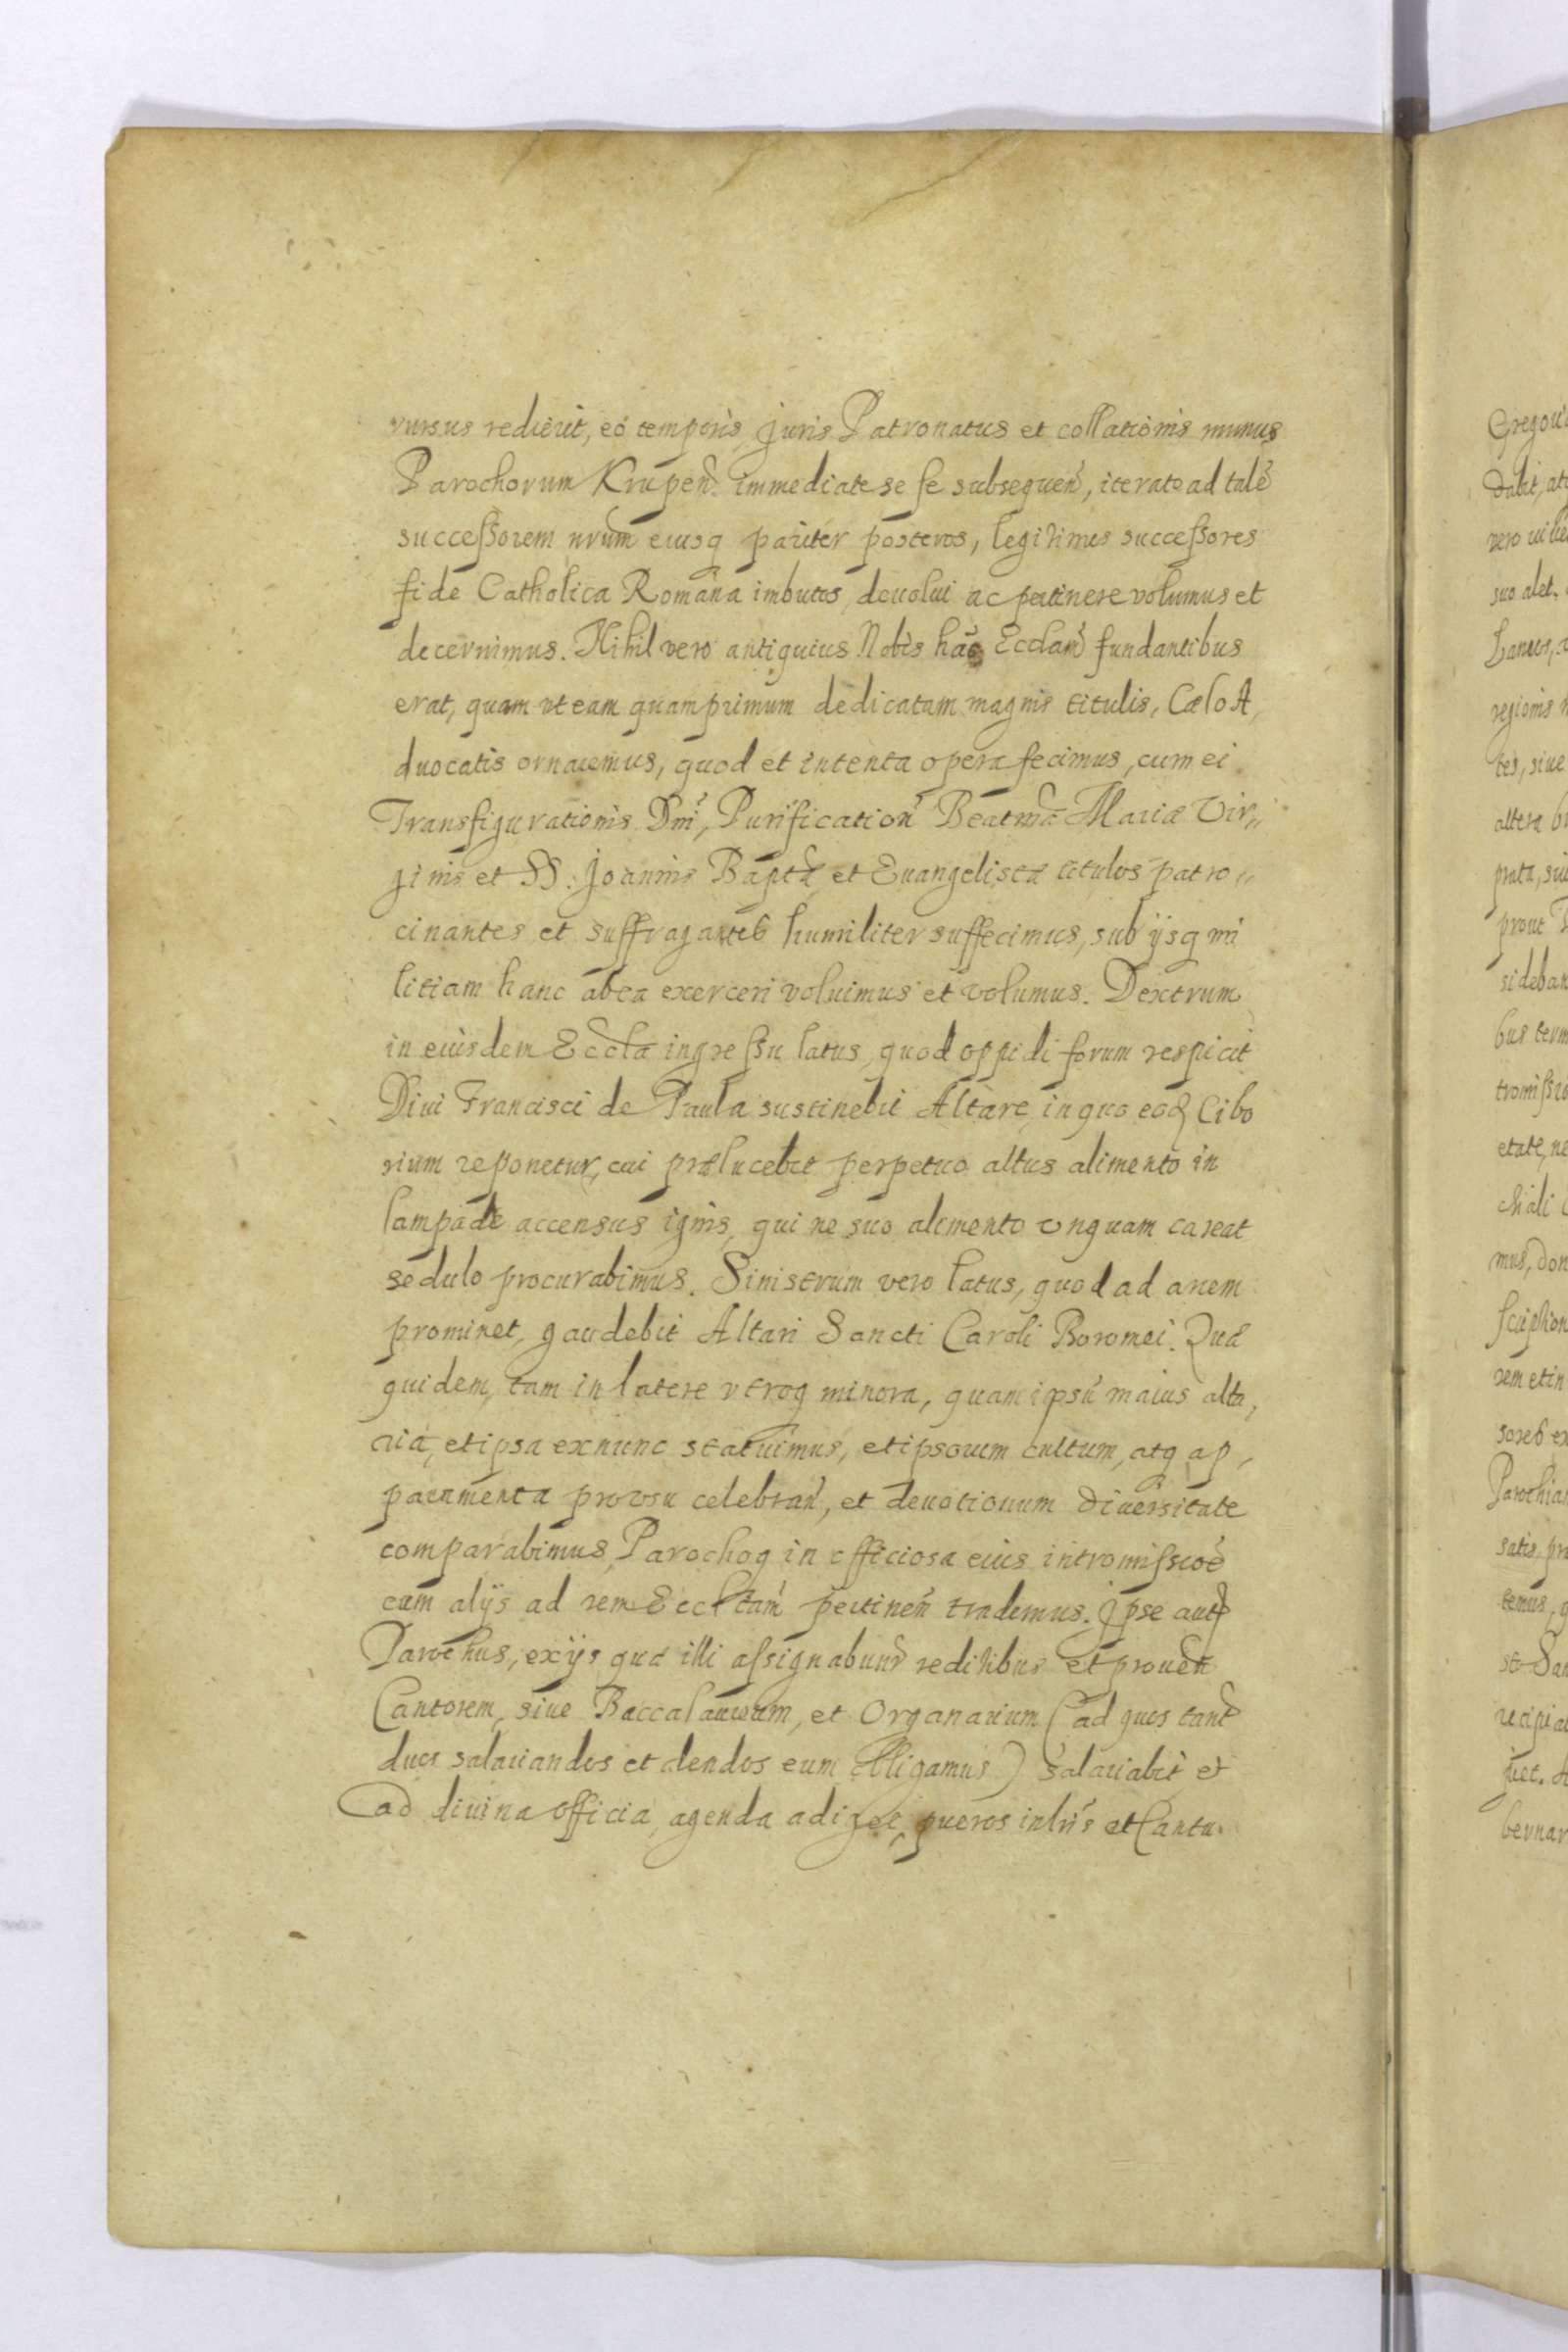 rursus redierit, eo temporis, Juris Patronatus et collationis munus
Parochorum Krupen̄. immediate se se subsequen̄, iterato ad talē
successorem nrum̄ eiusq pariter posteros, legitimos successores
fide Catholica Romana imbutos, deuolui ac pertinere volumus et
decernimus. Nihil vero antiquius Nobis hāc Eccłam̄ fundantibus
erat, quam vt eam quamprimum dedicatam magnis titulis, Cælo A,
duocatis ornaremus, quod et intenta opera fecimus, cum ei
Transfigurationis Dn̄i, Purification̄ Beatm̄æ Mariæ Vir,,
ginis et SS. Joannis Bapt̄æ et Euangelistæ titulos patro,,
cinantes et suffragantes humiliter suffecimus, sub ijsq mi
litiam hanc ab ea exerceri voluimus et volumus. Dextrum
in eiusdem Eccłæ ingressu latus, quod oppidi forum respicit
Diui Francisci de Paula sustinebit Altare, in quo eod Cibo
rium reponetur, cui prælucebit perpetuo altus alimento in
lampade accensus ignis, qui ne suo alimento vnquam careat
sedulo procurabimus. Sinistrum vero latus, quod ad arem
prominet, gaudebit Altari Sancti Caroli Boromei. Quæ
quidem, tam in latere vtroq minora, quam ipsū maius alta,
ria, et ipsa ex nunc statuimus, et ipsorum cultum, atq ap,
paramenta pro vsu celebran̄, et deuotionum diuersitate
comparabimus, Parochoq in officiosa eius intromissioē
cum alijs ad rem Ecclłam̄ pertinen̄ trademus. Jpse aut
Parochus, ex ijs quæ illi assignabunr̄ reditibus et prouen̄
Cantorem, siue Baccalaureum, et Organarium (ad quos tanr̄
duos salariandos et alendos eum obligamus) salariabit et
ad diuina officia, agenda adiget, pueros in lrīs et Cantu